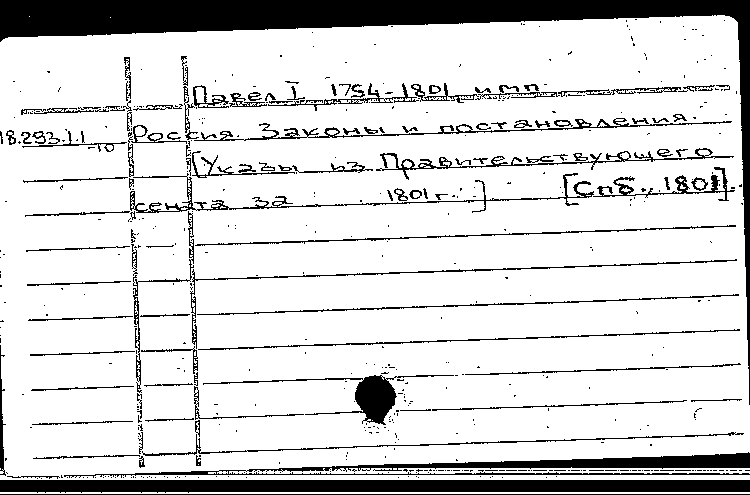 Павел I, 1754-1801, имп.
18.293.1.1 Россия. Законы и постановления.
-10
[Указы из Правительствующего
сената за 1801 г.] [Спб., 1801].